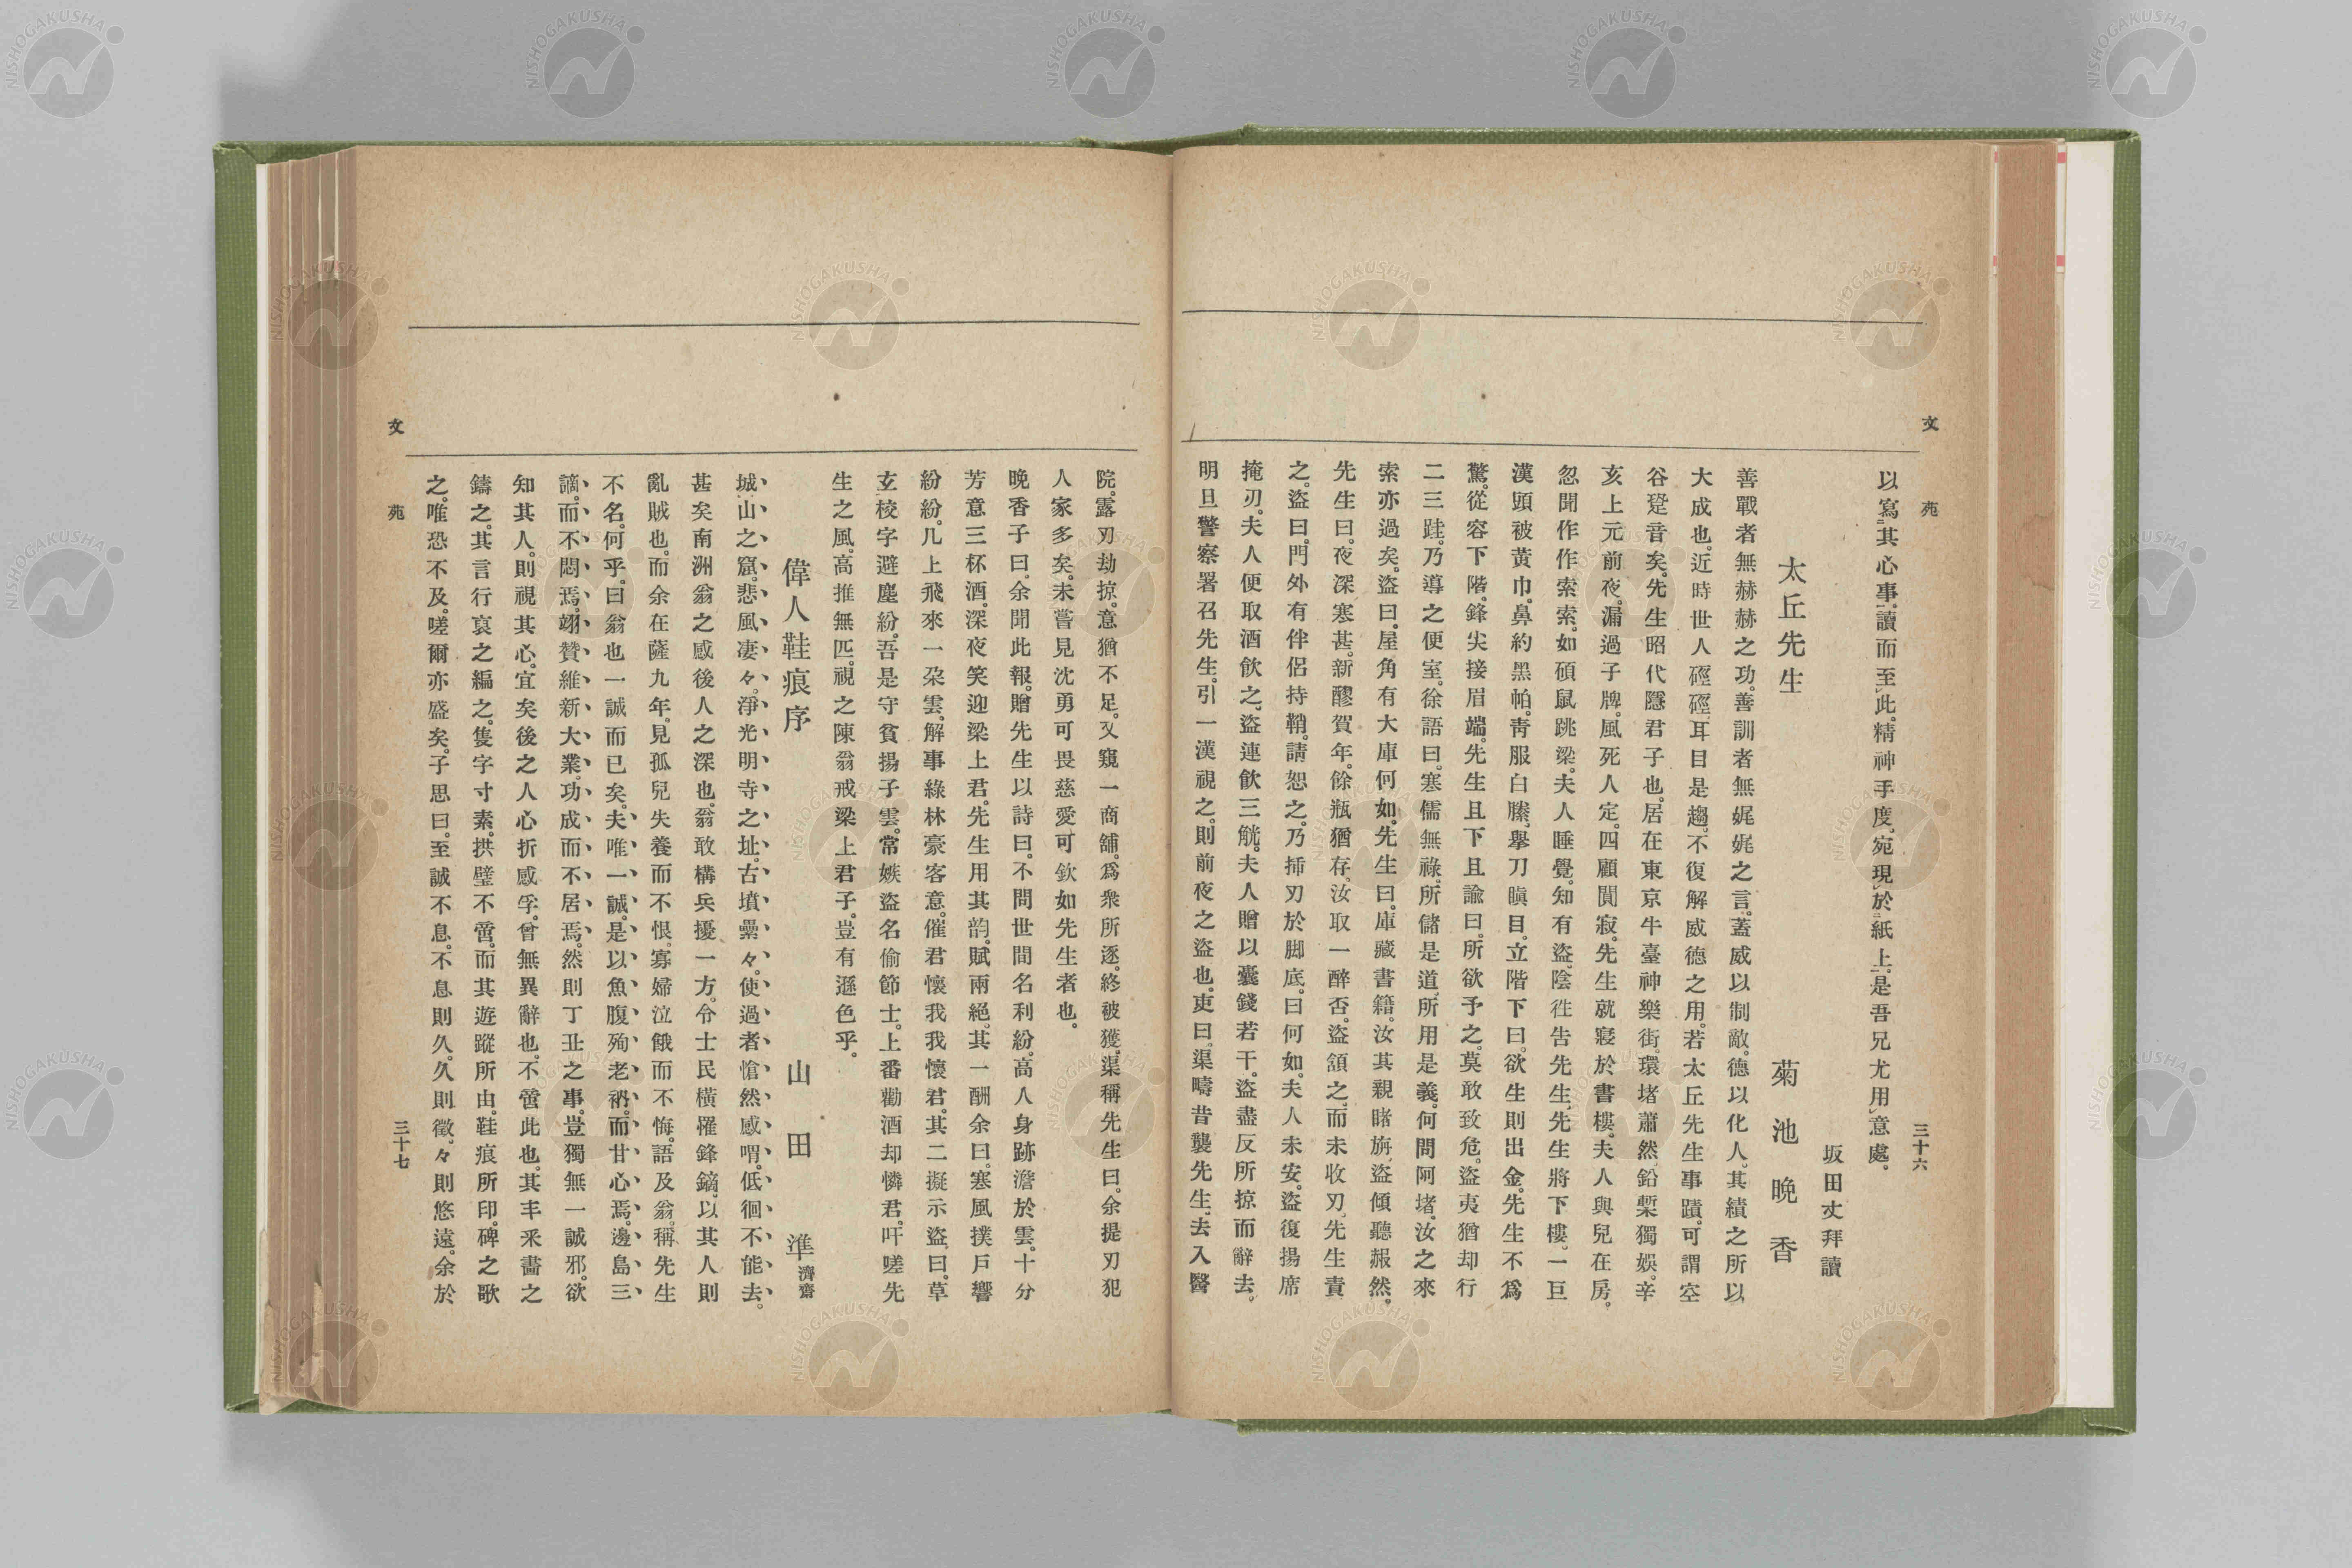 文苑
三十六
以寫其心事、讀而至此、精神手度、宛現於紙上、是吾兄尤用意處。
坂田丈拜讀
太丘先生
菊池晩香
善戰者無赫赫之功。善訓者無娓娓之言。蓋威以制敵。德以化人。其績之所以
大成也。近時世人硜硜耳目是趨。不復解威德之用。若太丘先生事蹟。可謂空
谷跫音矣。先生昭代隱君子也。居在東京牛臺神樂街。環堵蕭然。鉛槧獨娛。辛
亥上元前夜。漏過子牌。風死人定。四顧闃寂。先生就寢於書樓。夫人與兒在房。
忽聞作作索索。如碩鼠跳梁。夫人睡覺。知有盜。陰徃告先生。先生將下樓。一巨
漢頭被黃巾。鼻約黑帕。靑服白縢。擧刀瞋目。立階下曰。欲生則出金。先生不爲
驚。從容下階。鋒尖接眉端。先生且下且諭曰。所欲予之。莫敢致危。盜夷猶却行
二三跬。乃導之便室。徐語曰。寒儒無祿。所儲是道。所用是義。何問阿堵。汝之來
索亦過矣。盜曰。屋角有大庫何如。先生曰。庫藏書籍。汝其親睹旃。盜傾聽赧然。
先生曰。夜深寒甚。新醪賀年。餘瓶猶存。汝取一醉否。盜頷之。而未收刃。先生責
之。盜曰。門外有伴侶持鞘。請恕之。乃揷刃於脚底。曰何如。夫人未安。盜復揚席
掩刃。夫人便取酒飮之。盜連飮三觥。夫人贈以囊錢若干。盜盡反所掠而辭去。
明旦警察署召先生。引一漢視之。則前夜之盜也。吏曰。渠疇昔襲先生。去入醫
院。露刃劫掠。意猶不足。又窺一商舖。爲衆所逐。終被獲。渠稱先生曰。余提刃犯
人家多矣。未嘗見沈勇可畏慈愛可欽如先生者也。
晩香子曰。余聞此報。贈先生以詩曰。不問世間名利紛。高人身跡澹於雲。十分
芳意三杯酒。深夜笑迎梁上君。先生用其韵。賦兩絕。其一酬余曰。寒風撲戶響
紛紛。几上飛來一朶雲。解事綠林豪客意。催君懷我我懷君。其二擬示盜曰。草
玄校字避塵紛。吾是守貧揚子雲。常嫉盜名偷節士。上番勸酒却憐君。吁嗟先
生之風。高推無匹。視之陳翁戒梁上君子。豈有遜色乎。
偉人鞋痕序
山田準濟齋
城山之窟。悲風凄々。淨光明寺之址。古墳纍々。使過者愴然感喟。低徊不能去。
甚矣南洲翁之感後人之深也。翁敢構兵擾一方。令士民橫罹鋒鏑。以其人則
亂賊也。而余在薩九年。見孤兒失養而不恨。寡婦泣餓而不悔。語及翁。稱先生
不名。何乎。曰翁也一誠而已矣。夫唯一誠。是以魚腹殉老衲。而甘心焉。邊島三
謫。而不悶焉。翊贊維新大業。功成而不居焉。然則丁丑之事。豈獨無一誠邪。欲
知其人。則視其心。宜矣後之人心折感孚。曾無異辭也。不啻此也。其丰釆畵之
鑄之。其言行裒之編之。隻字寸素。拱璧不啻。而其遊蹤所由。鞋痕所印。碑之歌
之。唯恐不及。嗟爾亦盛矣。子思曰。至誠不息。不息則久。久則徵。々則悠遠。余於
文苑
三十七